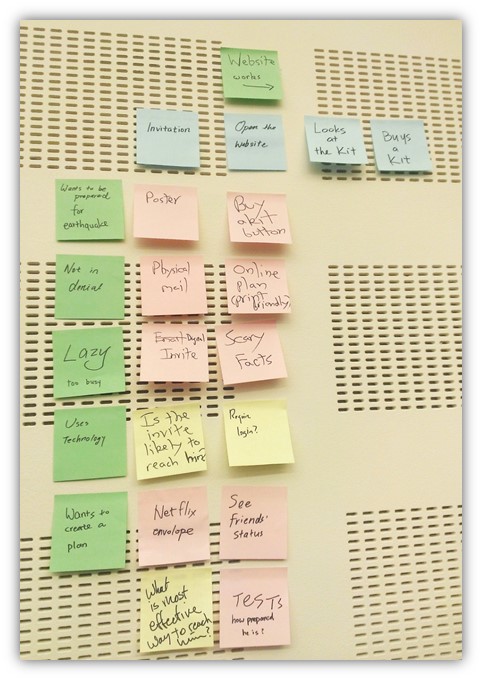 Website
works
Invitation
Open the
website
Looks
at the
the Kit
Buys
a
Kit
Wants to be
prepared
for
earthquake
Poster
Buy
a kit
button
Not in
denial
Physical
mail
Online
plan
(print
friendly)
Lazy
too busy
Invite
Scary
Facts
Uses
Technology
Is the
invite
likely to
reach him?
Require
login?
Wants to
create a
plan
Netflix
envelope
See
friends'
status
What
is most
effective
way to reach
him?
TESTS
how prepared
he is?